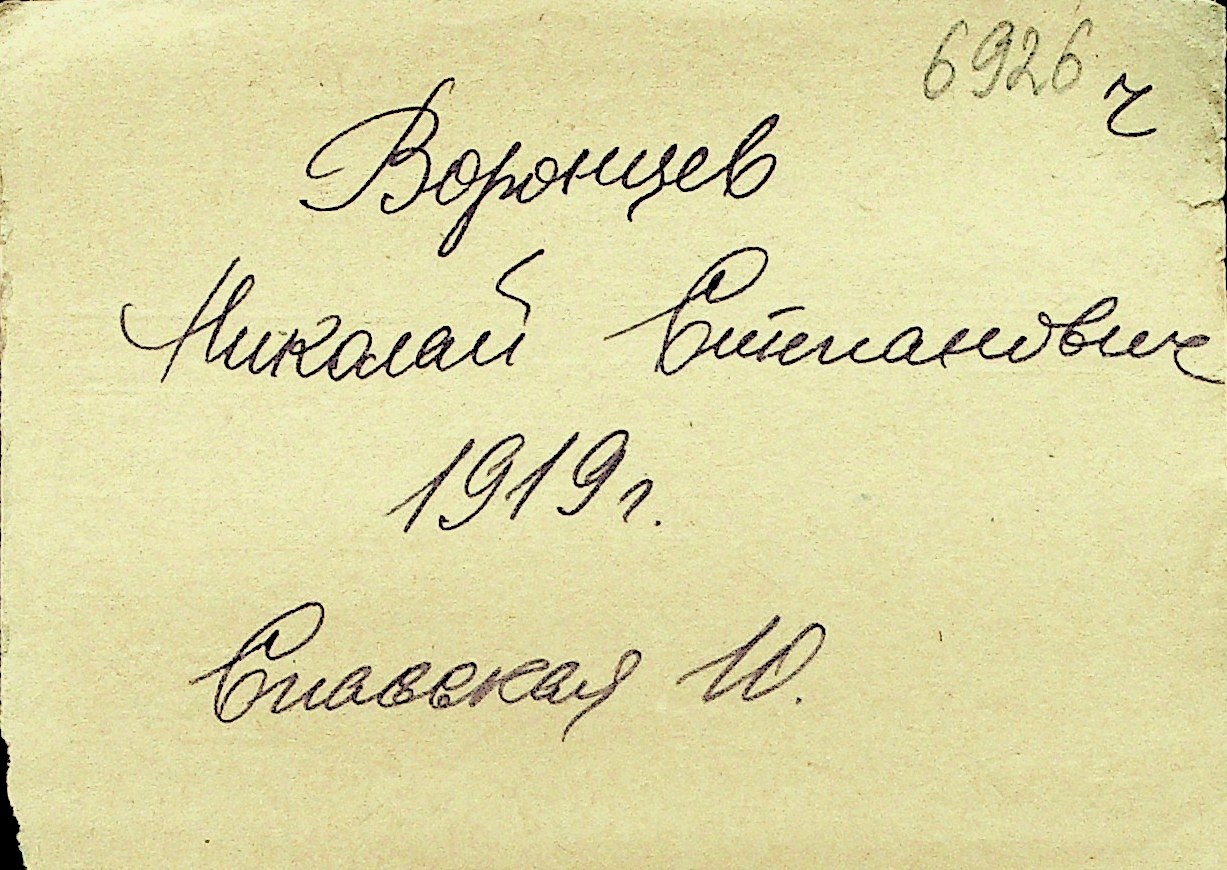 6926 ч
Воронцев
Николай Степанович
1919 г.
Спасская 10.